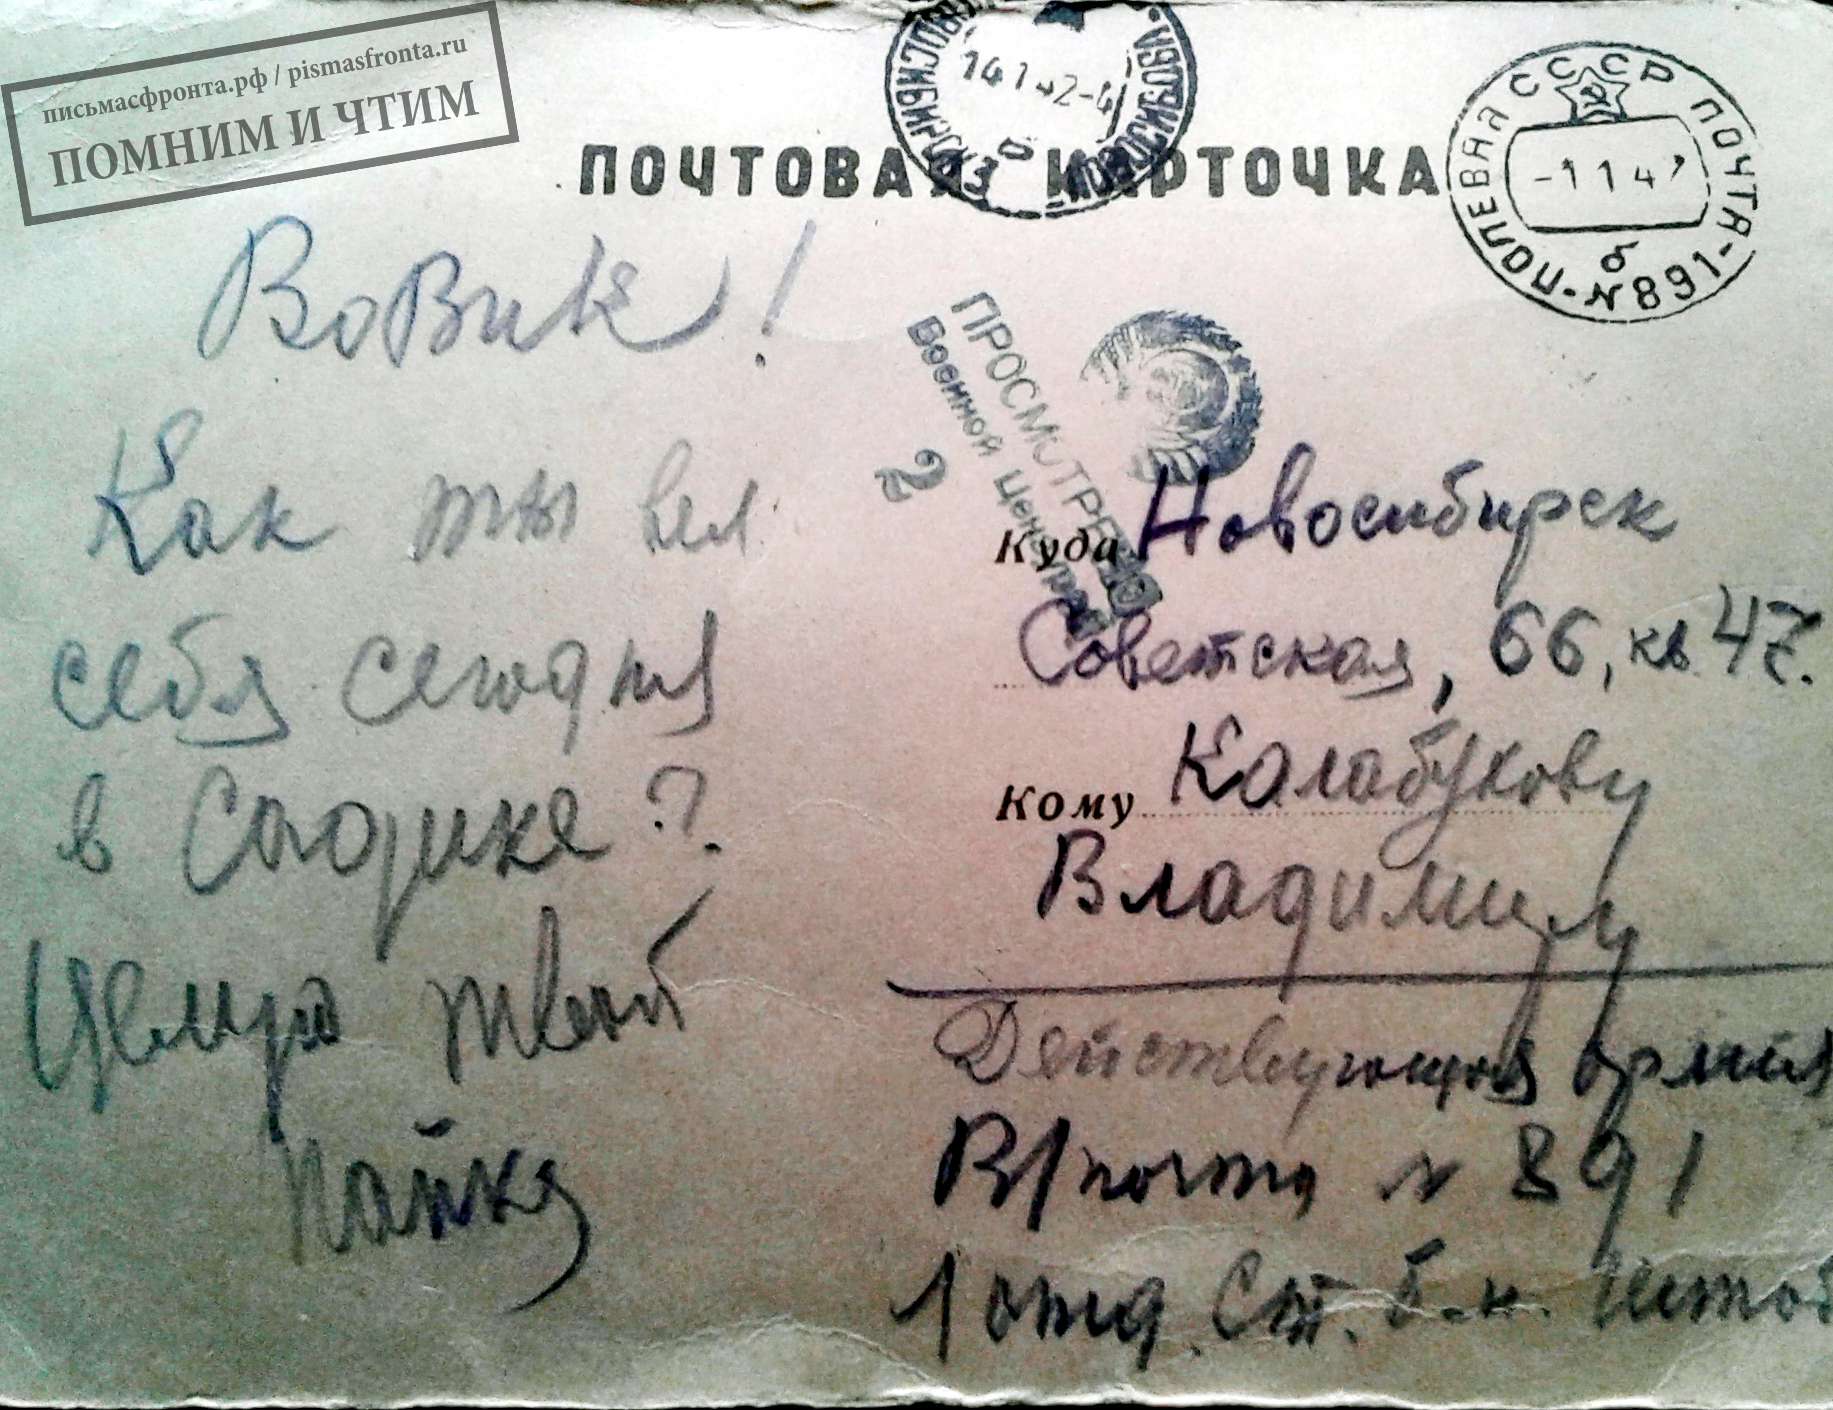 письмасфронта.рф / pismasfronta.ru
ПОМНИМ И ЧТИМ
ПОЧТОВАЯ КАРТОЧКА
НОВОСИБИРСК
НОВОСИБ.ОБЛ.
14 1 42-4
ПОЛЕВАЯ СССР ПОЧТА
-1 1 42
б
-N 891-
Вовик!
Как ты вел
себя сегодня
в Садике?
Целую твой
папка
ПРОСМОТРЕНО
Военной Цензурой
2
Куда Новосибирск
Советская, 66, кв 47.
Кому Калабухову
Владимиру
Действующая армия
В/почта N 891
1 отд. Ст. б-н. Штаб